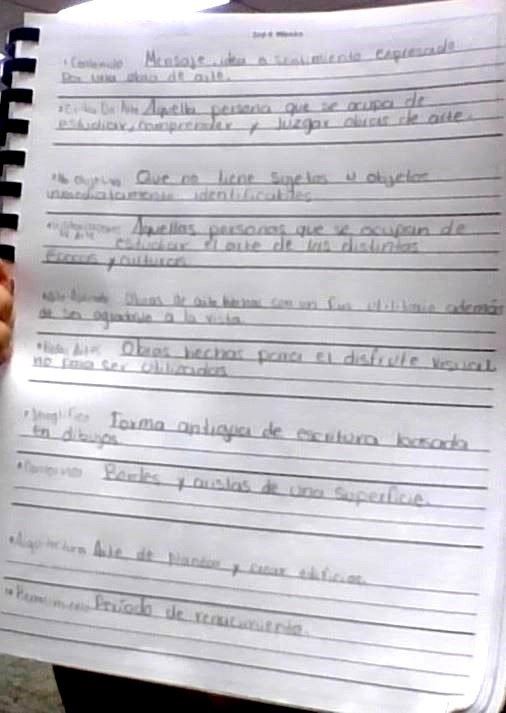 • Contenido Mensaje, idea o sentimiento expresado
por una obra de arte.
• Crítico De Arte Aquella persona que se ocupa de
estudiar, comprender y juzgar obras de arte.
• No objetivo Que no tiene sujetos u objetos
inmediatamente identificables
Aquellas personas que se ocupan de
de Arte estudiar el arte de las distintas
épocas y culturas
• Arte Aplicado Obras de arte hechas con un fin utilitario además
de ser agradable a la vista.
• Bellas Artes Obras hechas para el disfrute visual
no para ser utilizados
• Jeroglífico Forma antigua de escritura basada
en dibujos
• Contornos Bordes y aristas de una superficie.
• Arquitectura Arte de plantear y crear edificios.
• Renacimiento Período de renacimiento.